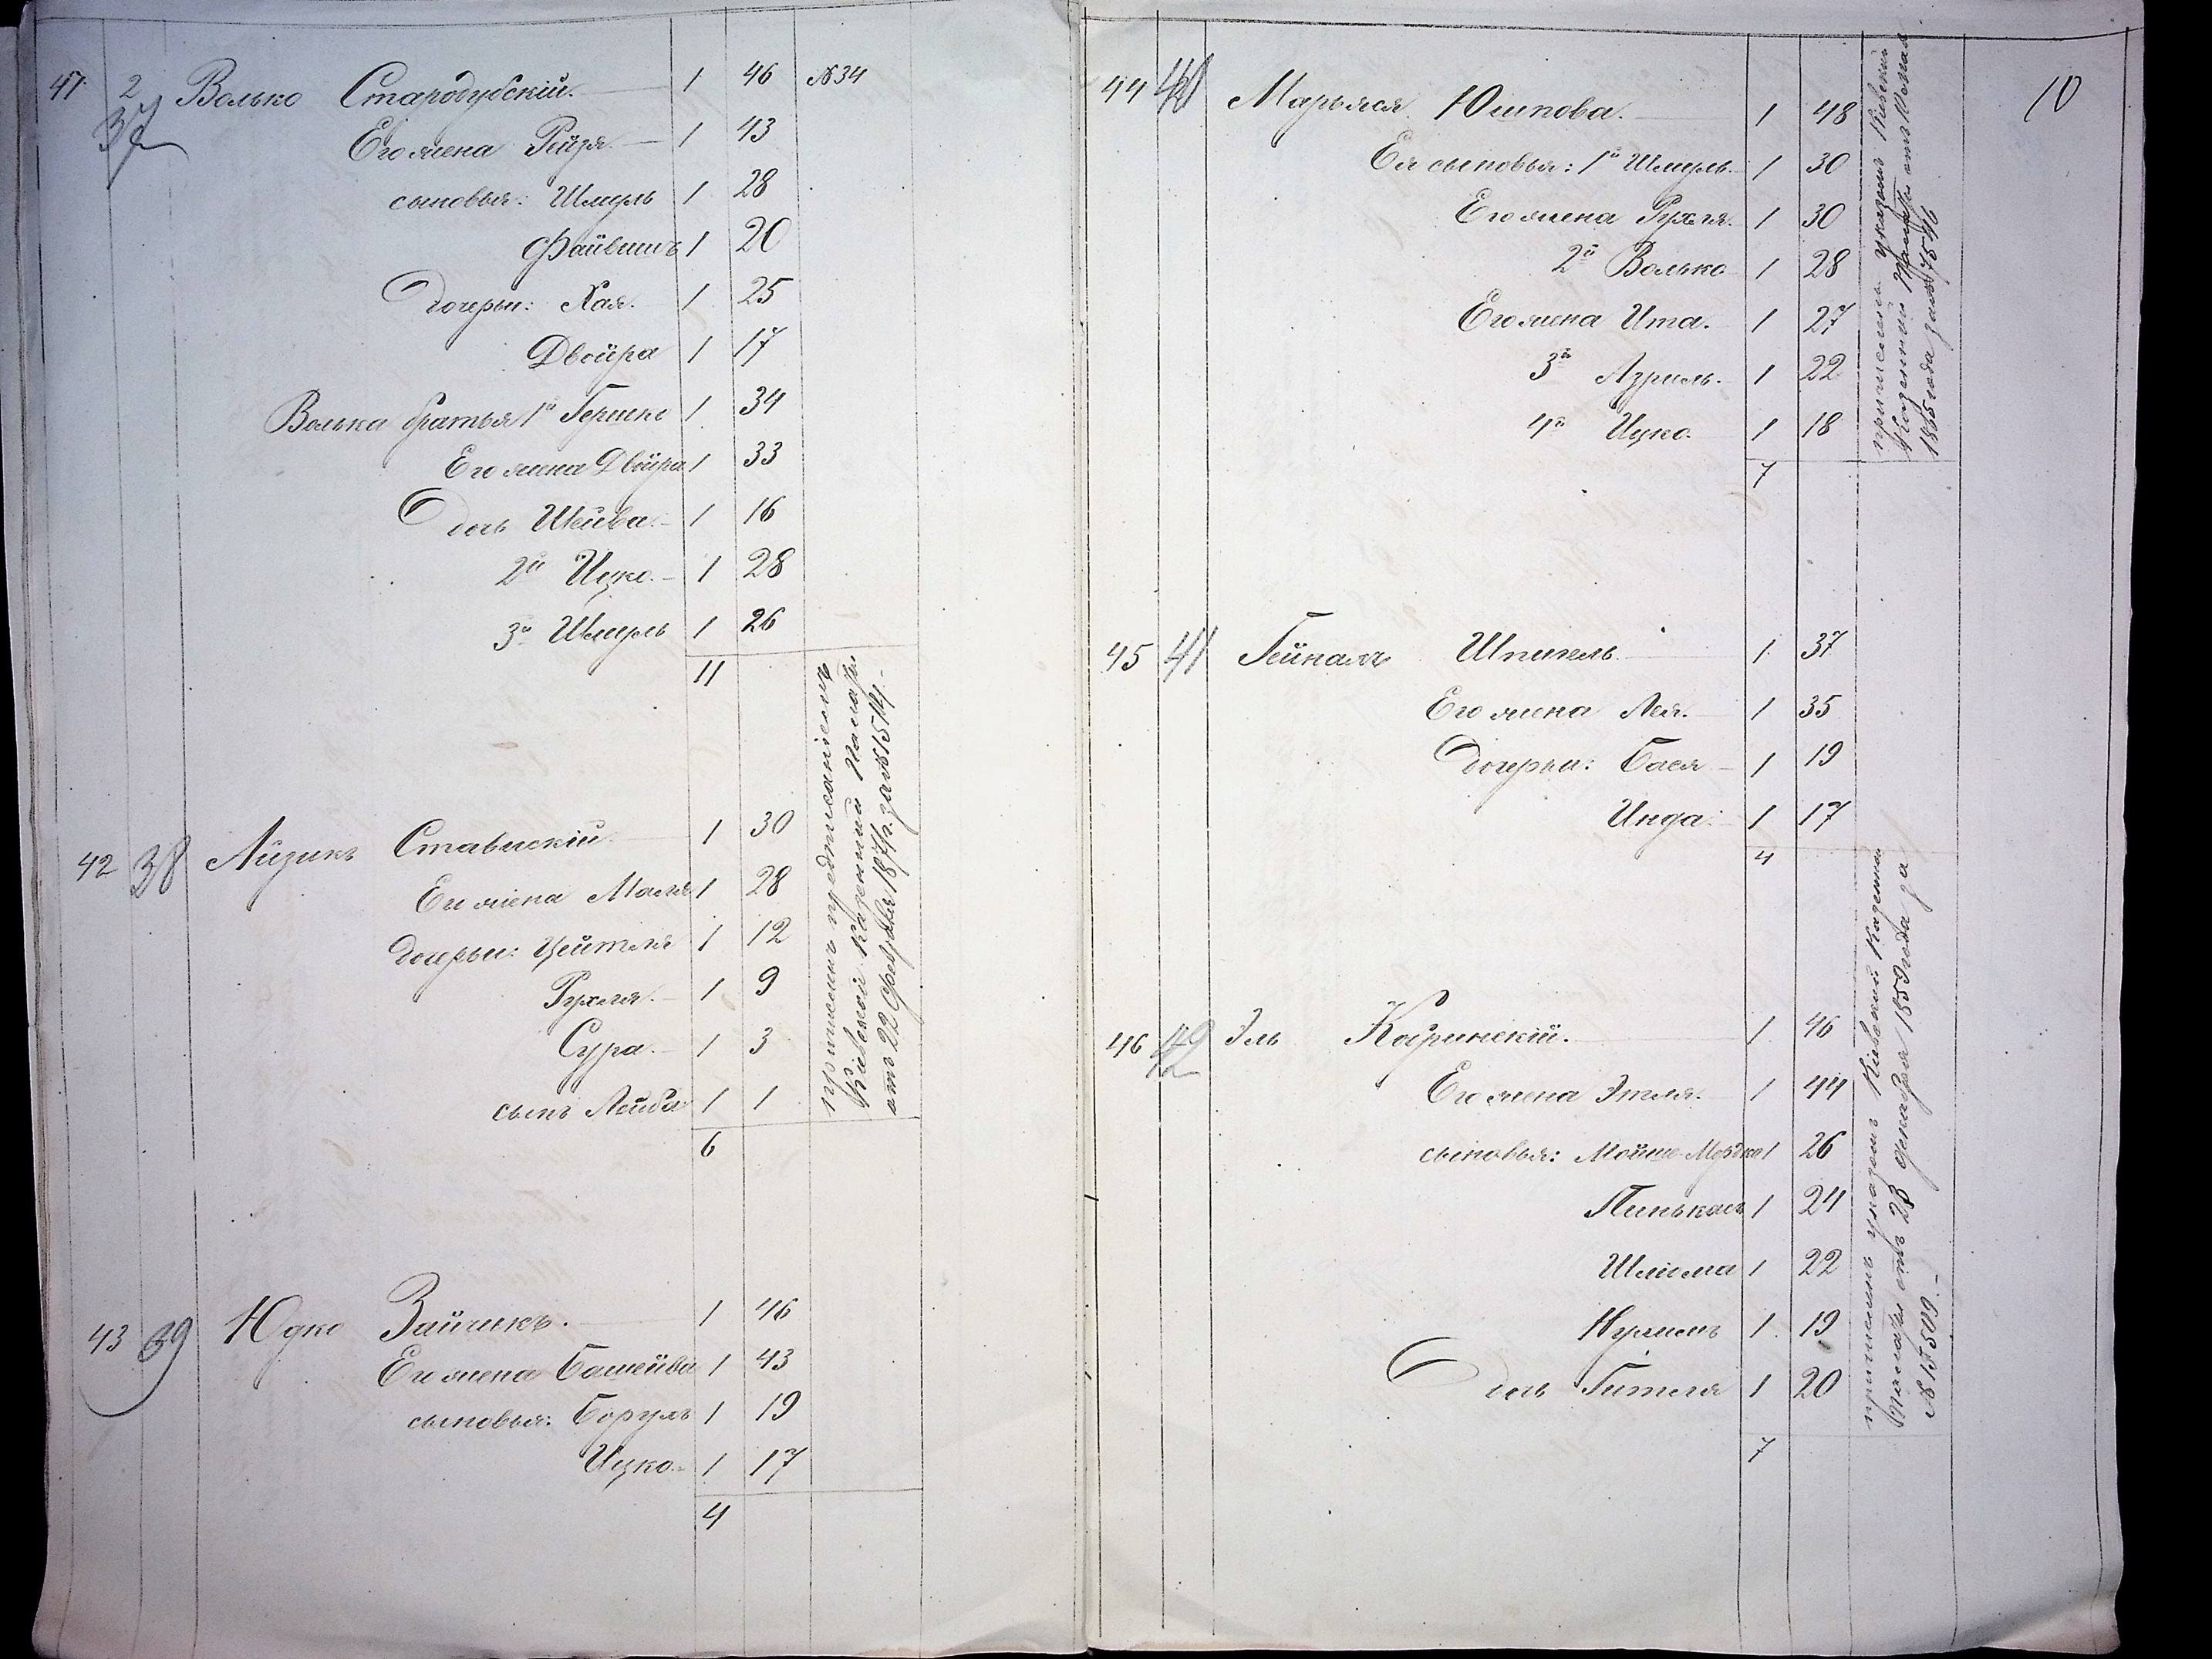 41 2 Волько Стародубскій. 1 46 №34
37
Его жена Рейзя 1 43
сыновья: Шмуль 1 28
Файвишъ 1 20
дочери: Хая. 1 25
Двойра 1 17
Волька братья 1й Гершко 1 34
Его жена Двойра 1 33
дочь Шейва 1 16
2й Ицко. 1 28
3й Шмуль 1 26
11
42 38 Айзикъ Ставискій 1 30
Его жена Маля 1 28
дочери: Цейтля 1 12
Рухля. 1 9
Сура. 1 3
сынъ Лейба 1 1
6
причисленъ предписаніемъ
Кіевской Казенной Палаты
отъ 22 февраля 1871г. за №1514.
43 39 Юдко Зайчикъ. 1 46
Его жена Башейва 1 43
сыновья: Борухъ 1 19
Ицко 1 17
4
10
44 40 Марьяся Юшкова. 1 48
Ея сыновья: 1й Шмуль. 1 30
Его жена Рухля. 1 30
2й Волько 1 28
Его жена Ита. 1 27
3й Азриль. 1 22
4й Ицко. 1 18
7
причислены указомъ Кіевской
Казенной Палаты отъ
1855 года за №7546
45 41 Шпигель 1 37
Его жена Лея. 1 35
дочери: Бася 1 19
Инда 1 17
4
46 42 Эль Кагринскій. 1 46
Его жена Этля. 1 44
сыновья: Мойше-Мордко 1 26
Пинькасъ 1 24
Шлиома 1 22
Нухимъ 1 19
дочь Гитля 1 20
7
причисленъ указомъ Кіевской Казенной
Палаты отъ 23 декабря 1859 года за
№15509.